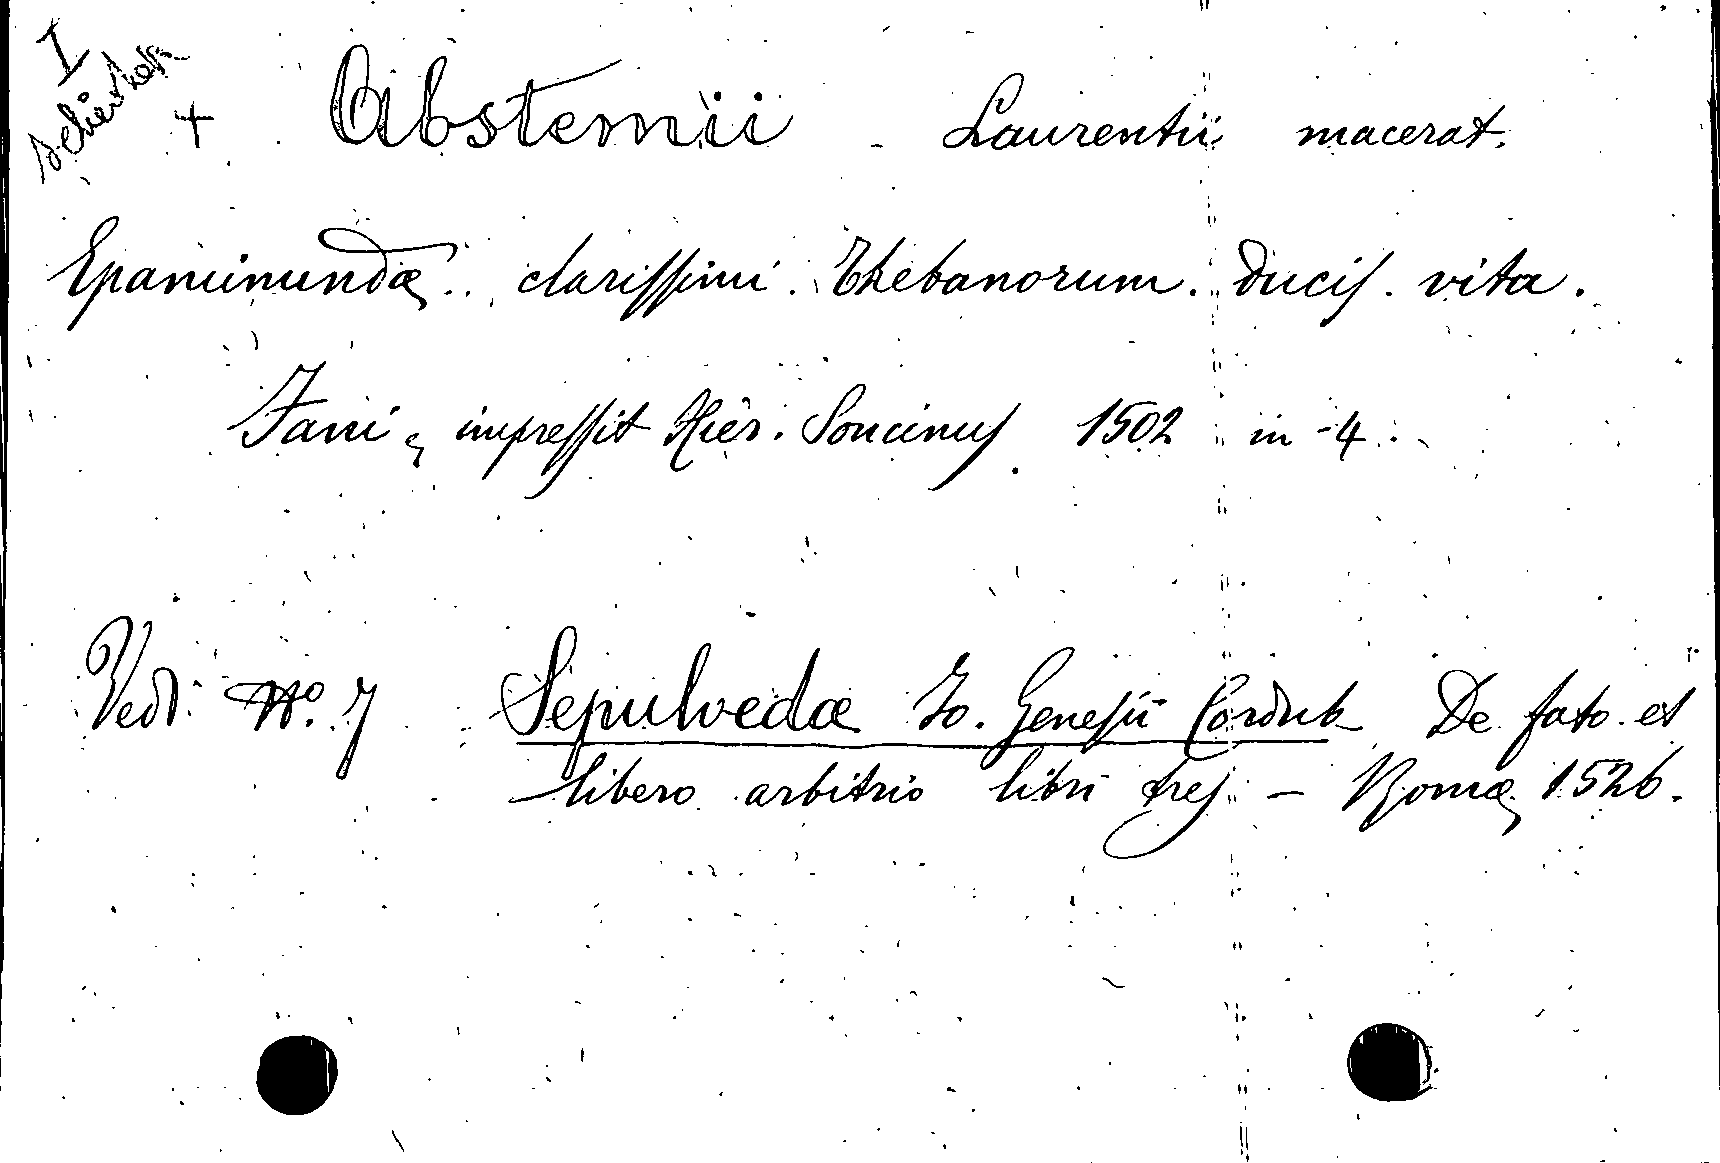 I
+ Abstemii - Laurentii macerat.
Epaminundæ. clarissimi. Thebanorum. ducis. vita.
Fani, impressit Hier. Soncinus 1502 in-4.
Vedi No. 7 Sepulvedæ Jo. Genesii Cordub De fato et
libero arbitrio libri tres - Romæ, 1526.